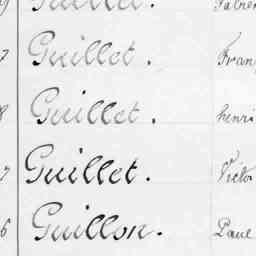 9 Guillet. Fabien
7 Guillet. Franç
8 Guillet. henri
7 Guillet. Victo
6 Guillon. Paul